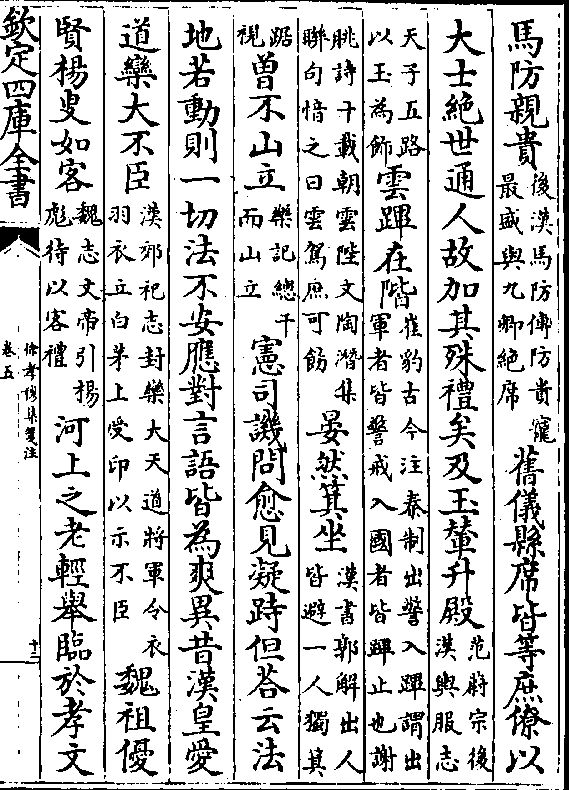 馬防親貴後漢馬防傳防貴寵最盛與九卿絶席舊儀縣席皆等庶僚以
大士絶世通人故加其殊禮矣及玉輦升殿范蔚宗後漢輿服志
天子五路以玉為飾雲蹕在階崔豹古今注秦制出警入蹕謂出軍者皆警戒入國者皆蹕止也謝
朓詩十載朝雲陛文陶潛集聯句愔之曰雲駕庶可飭晏然箕坐漢書郭解出人皆避一人獨箕
踞視曾不山立樂記總干而山立憲司譏問愈見凝跱但荅云法
地若動則一切法不安應對言語皆為爽異昔漢皇愛
道欒大不臣漢郊祀志封欒大天道將軍令衣羽衣立白茅上受印以示不臣魏祖優
賢楊叟如客魏志文帝引楊彪待以客禮河上之老輕舉臨於孝文
欽定四庫全書
徐孝穆集箋注
卷五
十三